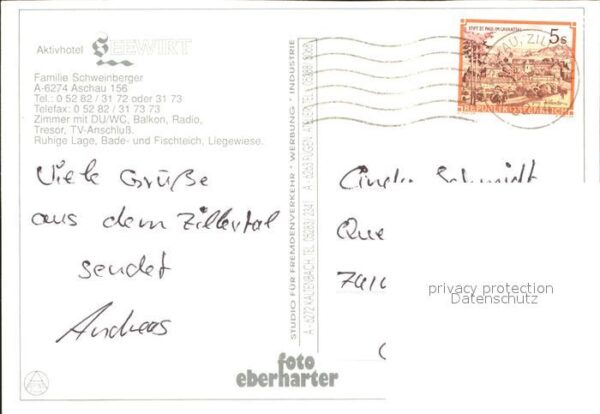 Aktivhotel SEEWIRT
Familie Schweinberger
A-6274 Aschau 156
Tel.: 0 52 82 / 31 72 oder 31 73
Telefax: 0 52 82 / 31 73 73
Zimmer mit DU/WC, Balkon, Radio,
Tresor, TV-Anschluß.
Ruhige Lage, Bade- und Fischteich, Liegewiese.
Viele Grüße
aus dem Zillertal
sendet
Andreas
STUDIO FÜR FREMDENVERKEHR * WERBUNG * INDUSTRIE
A - 6272 KALTENBACH, TEL. 05283/ 2241
foto
eberharter
STIFT ST. PAUL IM LAVANTTAL
5 S
REPUBLIK ÖSTERREICH
Schmidt
privacy protection
Datenschutz